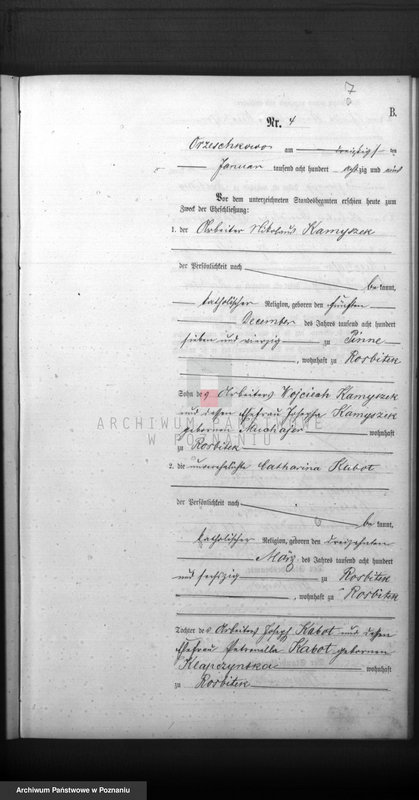 7
B.
Nr. 4
Orzeschkowo am dreizigst en
Januar tausend acht hundert achtzig und
Vor dem unterzeichneten Standesbeamten erschien heute zum
Zweck der Eheschließung:
1. der Arbeiter Nikolaus Kamyszek
der Persönlichkeit nach
be kannt,
katholischer Religion, geboren den fünften
December des Jahres tausend acht hundert
sieben und vierzig zu Pinne
, wohnhaft zu Rosbitek
Sohn des Arbeiters Wojciech Kamyszek
und dessen Ehefrau Josepha Kamyszek
ARCHIWUM PAŃSTWOWE
geborenen wohnhaft
W POZNANIU
zu Rosbitek
2. die unverehelichte Catharina Kabot
der Persönlichkeit nach
be kannt,
katholischer Religion, geboren den dreizehnten
März des Jahres tausend acht hundert
und sechszig zu Rosbitek
, wohnhaft zu Rosbitek
Tochter des Arbeiters Joseph Kabot und dessen
Ehefrau Petronella Kabot geborenen
Klapczynska wohnhaft
zu Rosbitek
Archiwum Państwowe w Poznaniu